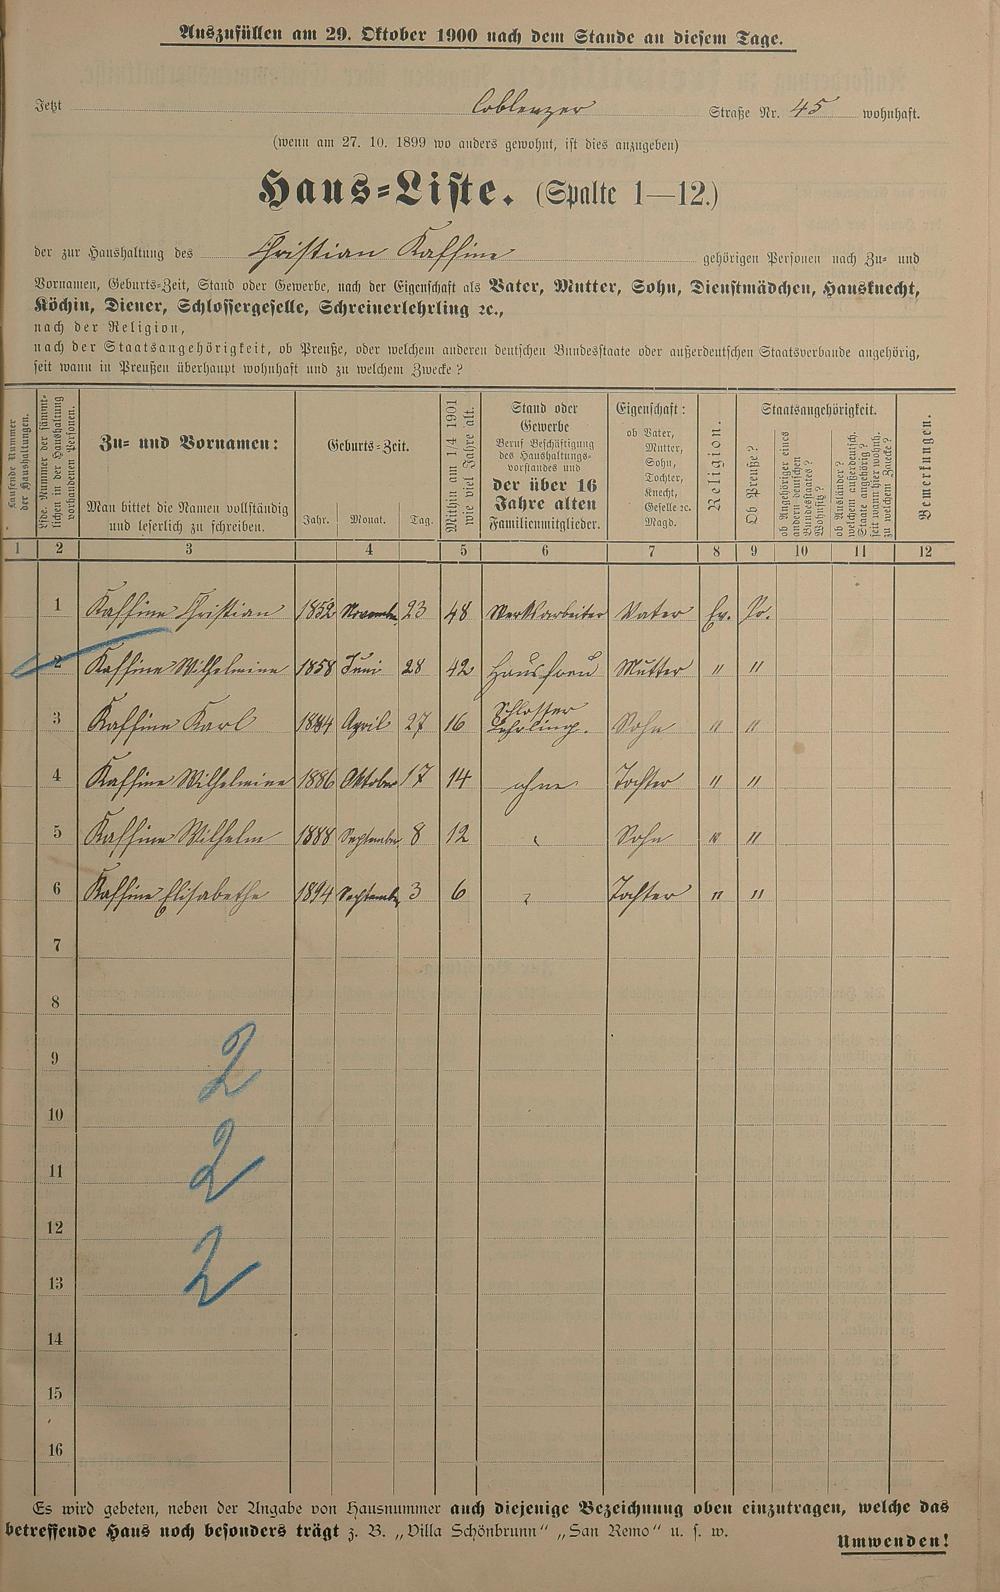 Auszufüllen am 29. Oktober 1900 nach dem Stande an diesem Tage.
Jetzt Coblenzer Straße Nr. 45 wohnhaft.
(wenn am 27. 10. 1899 wo anders gewohnt, ist dies anzugeben)
Haus-Liste. (Spalte 1—12.)
der zur Haushaltung des Christian Kaffine gehörigen Personen nach Zu- und
Vornamen, Geburts-Zeit, Stand oder Gewerbe, nach der Eigenschaft als Vater, Mutter, Sohn, Dienstmädchen, Hausknecht,
Köchin, Diener, Schlossergeselle, Schreinerlehrling ꝛc.,
nach der Religion,
nach der Staatsangehörigkeit, ob Preuße, oder welchem anderen deutschen Bundesstaate oder außerdeutschen Staatsverbande angehörig,
seit wann in Preußen überhaupt wohnhaft und zu welchem Zwecke?
Laufende Nummer
der Haushaltungen.
Lfde. Nummer der sämmt-
lichen in der Haushaltung
vorhandenen Personen.
Zu- und Vornamen:
Man bittet die Namen vollständig
und leserlich zu schreiben.
Geburts-Zeit.
Jahr. Monat. Tag.
Mithin am 1/4 1901
wie viel Jahre alt.
Stand oder
Gewerbe
Beruf Beschäftigung
des Haushaltungs-
vorstandes und
der über 16
Jahre alten
Familienmitglieder.
Eigenschaft:
ob Vater,
Mutter,
Sohn,
Tochter,
Knecht,
Geselle ꝛc.
Magd.
Religion.
Staatsangehörigkeit.
Ob Preuße?
ob Angehöriger eines
andern deutschen
Bundesstaates?
Wohnsitz?
ob Ausländer?
welchem außerdeutsch.
Staate angehörig?
seit wann hier wohnh.
zu welchem Zwecke?
Bemerkungen.
1 2 3 4 5 6 7 8 9 10 11 12
1 Kaffine Christian 1852 November 23 48 Werksarbeiter Vater Ev. Pr.
2 Kaffine Wilhelmine 1858 Juni 28 42 Hausfrau Mutter " "
3 Kaffine Karl 1884 April 27 16 Schlosser Lehrling. Sohn " "
4 Kaffine Wilhelmine 1886 Oktober 17 14 ohne Tochter " "
5 Kaffine Wilhelm 1888 September 8 12 " Sohn " "
6 Kaffine Elisabethe 1894 September 3 6 " Tochter " "
7
8
9
2
10
11
2
12
13
2
14
15
16
Es wird gebeten, neben der Angabe von Hausnummer auch diejenige Bezeichnung oben einzutragen, welche das
betreffende Haus noch besonders trägt z. B. „Villa Schönbrunn" „San Remo" u. s. w.
Umwenden!